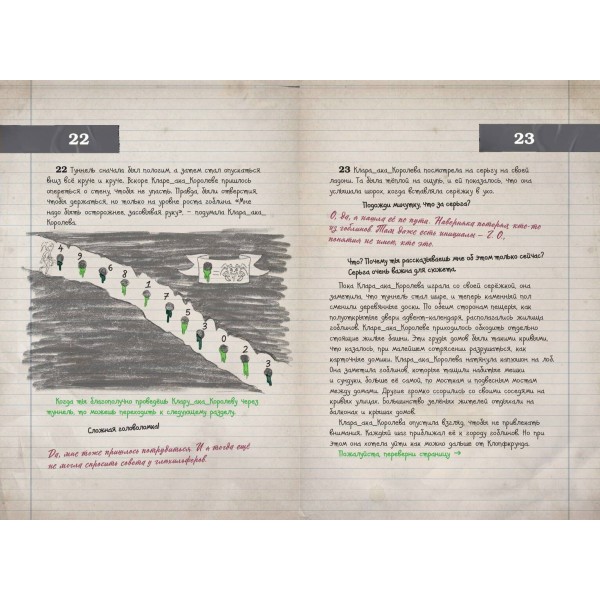 22
22 Туннель сначала был пологим, а затем стал опускаться
вниз всё круче и круче. Вскоре Кларе_ака_Королеве пришлось
опереться о стену, чтобы не упасть. Правда, были отверстия,
чтобы держаться, но только на уровне роста гоблина. «Мне
надо быть осторожнее, засовывая руку», – подумала Клара_ака_
Королева.
4
9
6
8
1
7
5
3
0
2
Когда ты благополучно проведёшь Клару_ака_Королеву через
туннель, то можешь переходить к следующему разделу.
Сложная головоломка!
Да, мне тоже пришлось потрудиться. И я тогда ещё
не могла спросить совета у
23
23 Клара_ака_Королева посмотрела на серьгу на своей
ладони. Та была тёплой на ощупь, и ей показалось, что она
услышала шорох, когда вставляла серёжку в ухо.
Подожди минутку, что за серьга?
О, да, я нашла её на пути. Наверняка потерял кто-то
из гоблинов. Там даже есть инициалы – Г. О.,
понятия не имею, кто это.
Что? Почему ты рассказываешь мне об этом только сейчас?
Серьга очень важна для сюжета.
Пока Клара_ака_Королева играла со своей серёжкой, она
заметила, что туннель стал шире, и теперь каменный пол
сменили деревянные доски. По обеим сторонам пещеры, как
полуоткрытые двери адвент-календаря, располагались жилища
гоблинов. Кларе_ака_Королеве приходилось обходить отдельно
стоящие жилые башни. Эти груды домов были такими кривыми,
что казалось, при малейшем сотрясении разрушатся, как
карточные домики. Клара_ака_Королева натянула капюшон на лоб.
Она заметила гоблинов, которые тащили набитые мешки
и сундуки, больше её самой, по мосткам и подвесным мостам
между домами. Другие громко ссорились со своими соседями на
кривых улицах. Большинство зелёных жителей отдыхали на
балконах и крышах домов.
Клара_ака_Королева опустила взгляд, чтобы не привлекать
внимания. Каждый шаг приближал её к городу гоблинов. Но при
этом она хотела уйти как можно дальше от
Пожалуйста, переверни страницу →